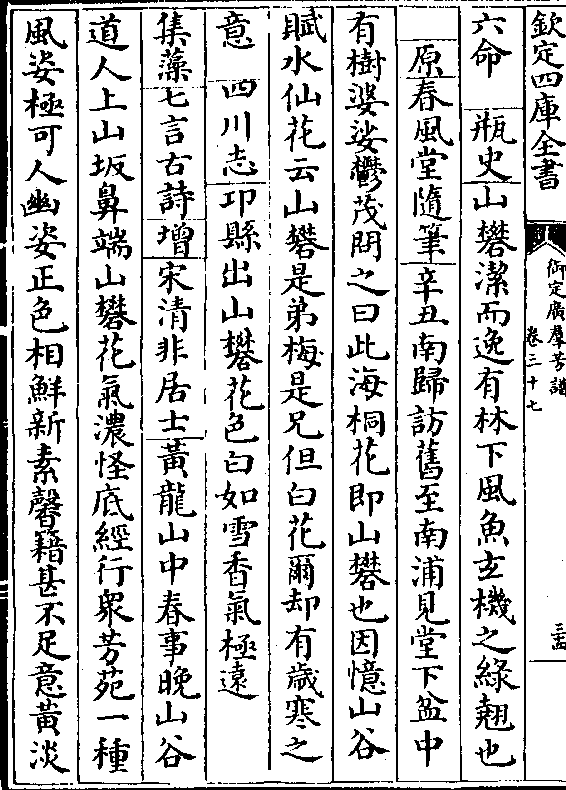 欽定四庫全書
御定廣羣芳譜
卷三十七
六命 瓶史山礬潔而逸有林下風魚玄機之綠翹也
原春風堂隨筆辛丑南歸訪舊至南浦見堂下盆中
有樹婆娑鬱茂問之曰此海桐花即山礬也因憶山谷
賦水仙花云山礬是弟梅是兄但白花爾却有歲寒之
意 四川志卭縣出山礬花色白如雪香氣極遠
集藻七言古詩增宋清非居士黃龍山中春事晚山谷
道人上山坂鼻端山礬花氣濃怪底經行衆芳苑一種
風姿極可人幽姿正色相鮮新素馨籍甚不足意黃淡